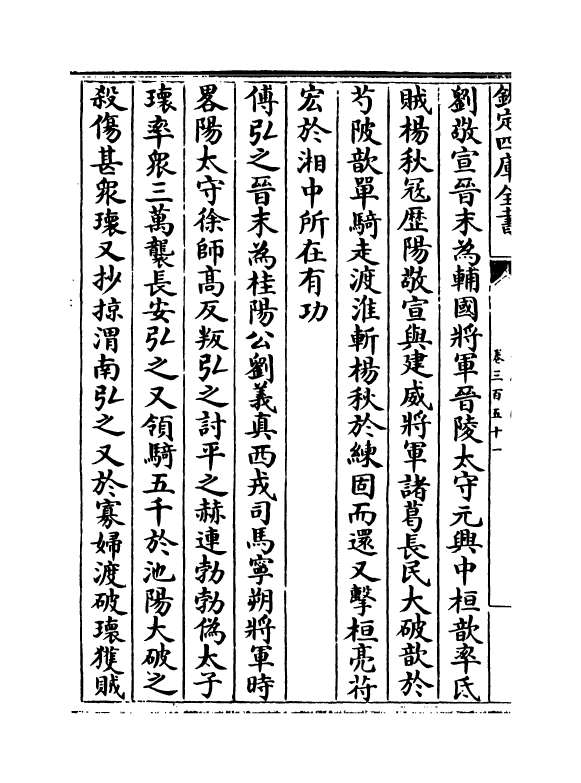 欽定四庫全書
卷三百五十一
劉敬宣晉末為輔國將軍晉陵太守元興中桓歆率氐
賊楊秋冦歴陽敬宣與建威將軍諸葛長民大破歆於
芍陂歆單騎走渡淮斬楊秋於練固而還又擊桓亮苻
宏於湘中所在有功
傅弘之晉末為桂陽公劉義真西戎司馬寧朔將軍時
畧陽太守徐師髙反叛弘之討平之赫連勃勃偽太子
瓌率衆三萬襲長安弘之又領騎五千於池陽大破之
殺傷甚衆瓌又抄掠渭南弘之又於寡婦渡破瓌獲賊